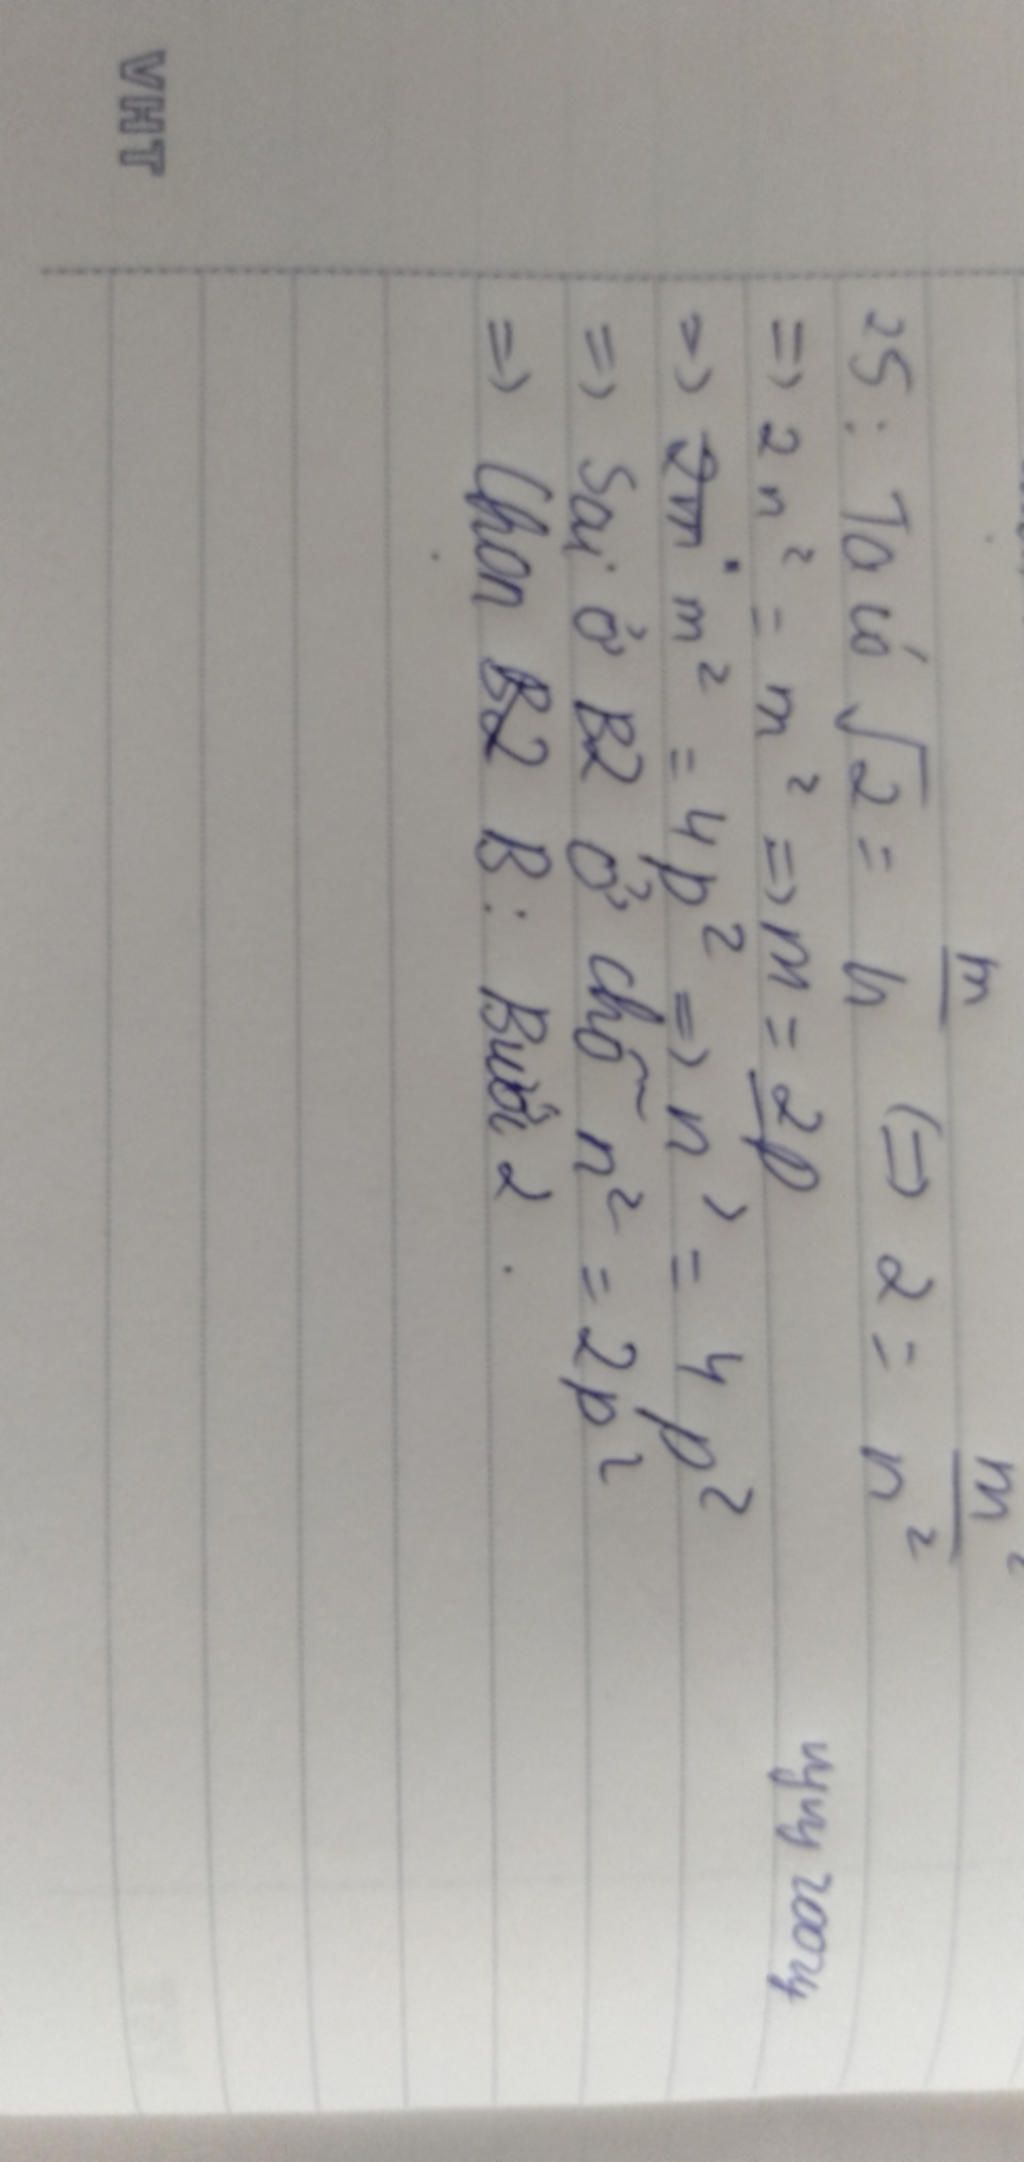 VHT
25: Ta có √2 = m/n (=) 2 = m²/n²
=> 2n² = m² => m = 2p
=> 2m m² = 4p² => n² = 4p²
=> Sai ở B2 ở chỗ n² = 2p²
=> Chọn B2 B: Bước 2.